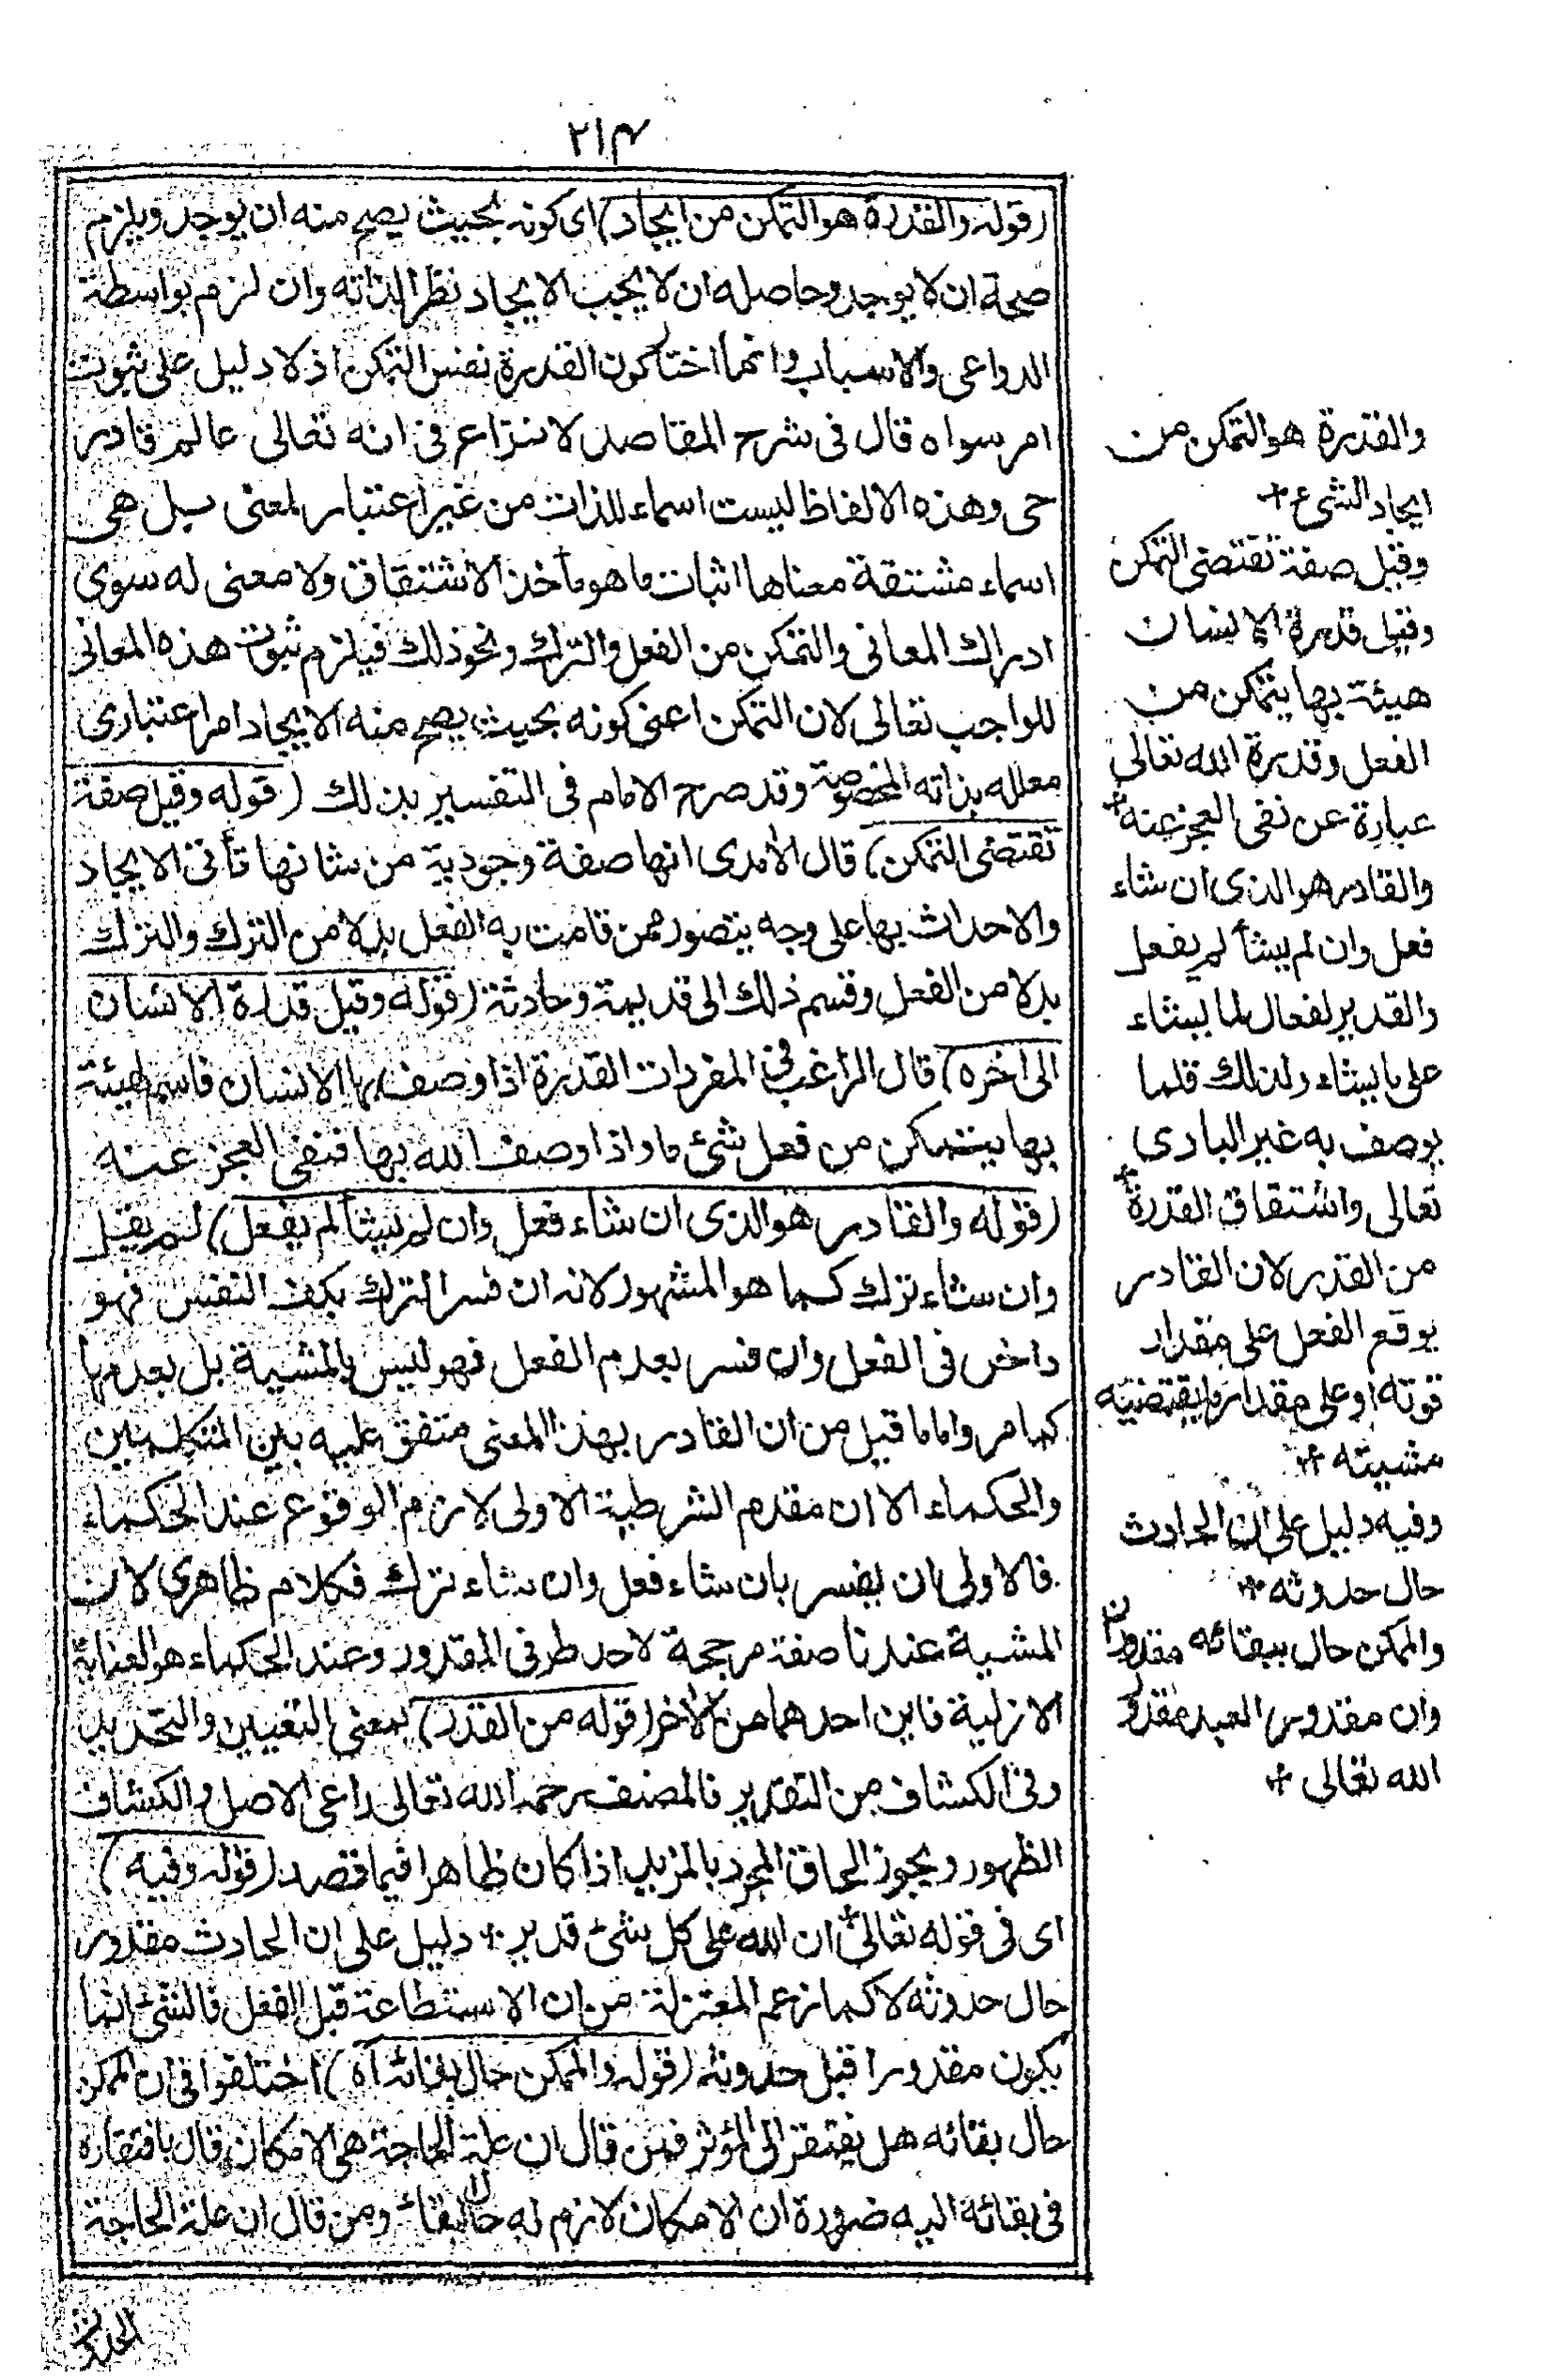 ٢١٤
(قوله والقدرة هو التمكن من ايجاد) اى كونه بحيث يصح منه ان يوجد ويلزم
صحة ان لا يوجد وحاصله ان لا يجب الايجاد نظرا لذاته وان لزم بواسطة
الدواعى والاسباب وانما اختار كون القدرة نفس التمكن اذ لا دليل على ثبوت
امر سواه قال فى شرح المقاصد لا نزاع فى انه تعالى عالم قادر
حى وهذه الالفاظ ليست اسماء للذات من غير اعتبار لمعنى بل هى
اسماء مشتقة معناها اثبات ما هو مأخذ الاشتقاق ولا معنى له سوى
ادراك المعانى والتمكن من الفعل والترك ونحو ذلك فيلزم ثبوت هذه المعانى
للواجب تعالى لان التمكن اعنى كونه بحيث يصح منه الايجاد امر اعتبارى
معلله بذاته المخصوصة وقد صرح الامام فى التفسير بذلك (قوله وقيل صفة
تقتضى التمكن) قال الآمدى انها صفة وجودية من شانها تأتى الايجاد
والاحداث بها على وجه يتصور ممن قامت به الفعل بدلا من الترك والترك
بدلا من الفعل وقسم ذلك الى قديمة وحادثة (قوله وقيل قدرة الانسان
الى اخره) قال الراغب فى المفردات القدرة اذا وصف بها الانسان فاسم لهيئة
بها يتمكن من فعل شئ ما واذا وصف الله بها فنفى العجز عنه
(قوله والقادر هو الذى ان شاء فعل وان لم يشأ لم يفعل) لم يقل
وان شاء ترك كما هو المشهور لانه ان فسر الترك بكف النفس فهو
داخل فى الفعل وان فسر بعدم الفعل فهو ليس بالمشية بل بعدمها
كما مر واما ما قيل من ان القادر بهذا المعنى متفق عليه بين المتكلمين
والحكماء الا ان مقدم الشرطية الاولى لازم الوقوع عند الحكماء
فالاولى ان يفسر بان شاء فعل وان شاء ترك فكلام ظاهرى لان
المشية عندنا صفة مرجحة لاحد طرفى المقدور وعند الحكماء هو العناية
الازلية فاين احدهما من الآخر (قوله من القدر) بمعنى التعيين والتحديد
وفى الكشاف من التقدير فالمصنف رحمه الله تعالى راعى الاصل والكشاف
الظهور ويجوز الحاق المجرد بالمزيد اذا كان ظاهرا فيما قصد (قوله وفيه)
اى فى قوله تعالى ان الله على كل شئ قدير دليل على ان الحادث مقدور
حال حدوثه لا كما زعم المعتزلة من ان الاستطاعة قبل الفعل فالشئ انما
يكون مقدورا قبل حدوثه (قوله والممكن حال بقائه اه) اختلفوا فى ان الممكن
حال بقائه هل يفتقر الى المؤثر فمن قال ان علة الحاجة هى الامكان قال بافتقاره
فى بقائه اليه ضرورة ان الامكان لازم له حال البقاء ومن قال ان علة الحاجة
والقدرة هو التمكن من
ايجاد الشئ
وقيل صفة تقتضى التمكن
وقيل قدرة الانسان
هيئة بها يتمكن من
الفعل وقدرة الله تعالى
عبارة عن نفى العجز عنه
والقادر هو الذى ان شاء
فعل وان لم يشأ لم يفعل
والقدير لفعال لما يشاء
على ما يشاء ولذلك قلما
يوصف به غير البارى
تعالى واشتقاق القدرة
من القدر لان القادر
يوقع الفعل على مقدار
قوته او على مقدار ما يقتضيه
مشيته
وفيه دليل على ان الحادث
حال حدوثه
والممكن حال بقائه مقدوران
وان مقدور العبد مقدور
الله تعالى